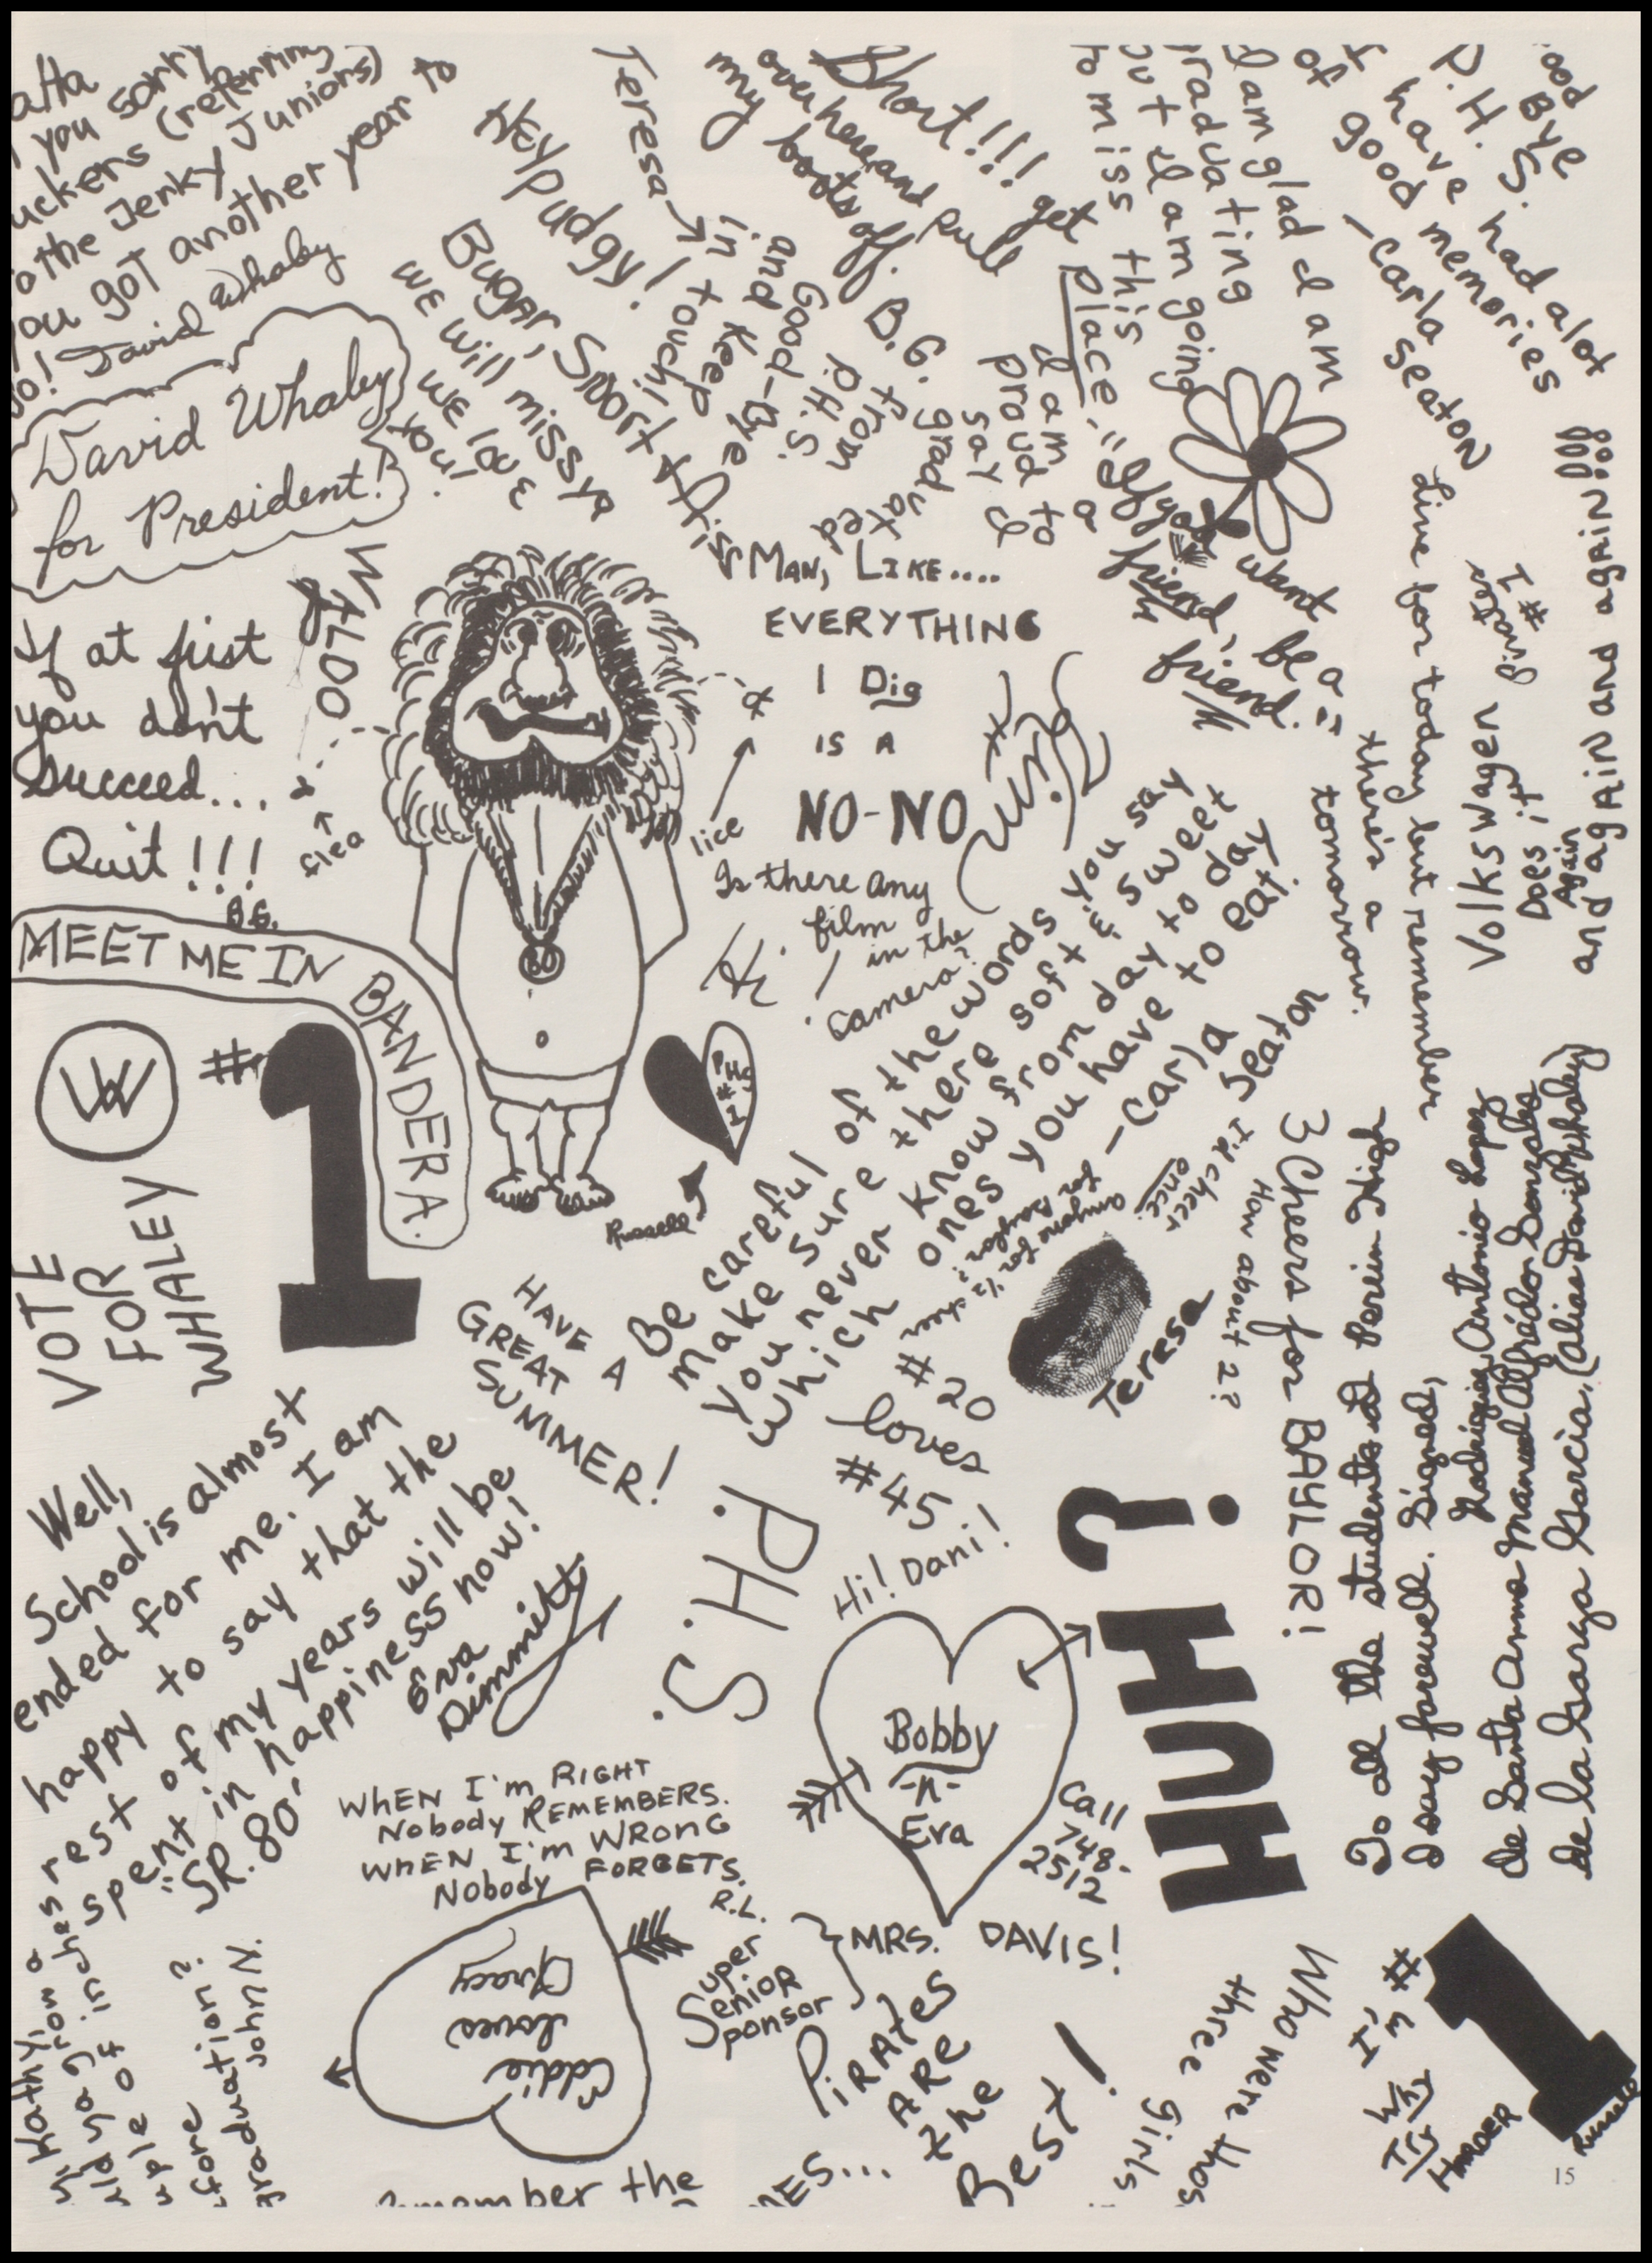 you sorry
(referring
to the Jerky Juniors)
you got another year to
go! David Whaley
David Whaley
for President!
If at first
you don't
succeed...
Quit!!!
B.G.
MEET ME IN BANDERA.
VW
VOTE
FOR
WHALEY
#1
Hey Pudgy!
Bugar, Short &
we will miss ya
we love
you!
Teresa →
Good-Bye
P.H.S.
and keep
in touch!
Short!!! get
over here and pull
my boots off.
B.G.
I am
proud to
say I
graduated
from
I am glad I am
graduating
but I am going
to miss this
place.
Good Bye
P.H.S.
I have had alot
of good memories
-Carla Seaton
"If you want
a friend, be a
friend."
flea
lice
MAN, LIKE....
EVERYTHING
I Dig
IS A
NO-NO
Hi
Is there any
film
in the
camera?
PHS
#1
Russell
Live for today but remember
there's a
tomorrow.
Volkswagen
#1
Does it
Again
and again and again!!!
Be careful of the words you say
make sure there soft & sweet
you never know from day to day
which ones you have to eat.
-Carla
Seaton
HAVE A
GREAT
SUMMER!
3 Cheers for BAYLOR!
How about 2?
I'd cheer
once.
anyone for 1/2 a cheer
for Baylor?
Teresa
#20
loves
#45
Hi! Dani!
P.H.S.
HUH?
To all the students at Perrin High
I say farewell. Signed,
Rodriguez Antonio Lopez
de Santa Anna Manuel Alfrádón Gonzales
de la Garza Garcia. (Alias David Whaley)
Well,
School is almost
ended for me. I am
happy to say that the
rest of my years will be
spent in happiness now!
SR. 80'
Eva
Dimmitt
WHEN I'm RIGHT
Nobody REMEMBERS.
WHEN I'm WRONG
Nobody FORGETS.
R.L.
Bobby
-n-
Eva
Call
748-
2512
Eddie
loves
Tracy
Super
Senior
Sponsor
MRS. DAVIS!
PIRATES
ARE
the
Best!
Kathy
grow a
of inches
graduation?
John N.
the
Who were
three girls
I'm #1
Why
Try
HARDER
Russell
15